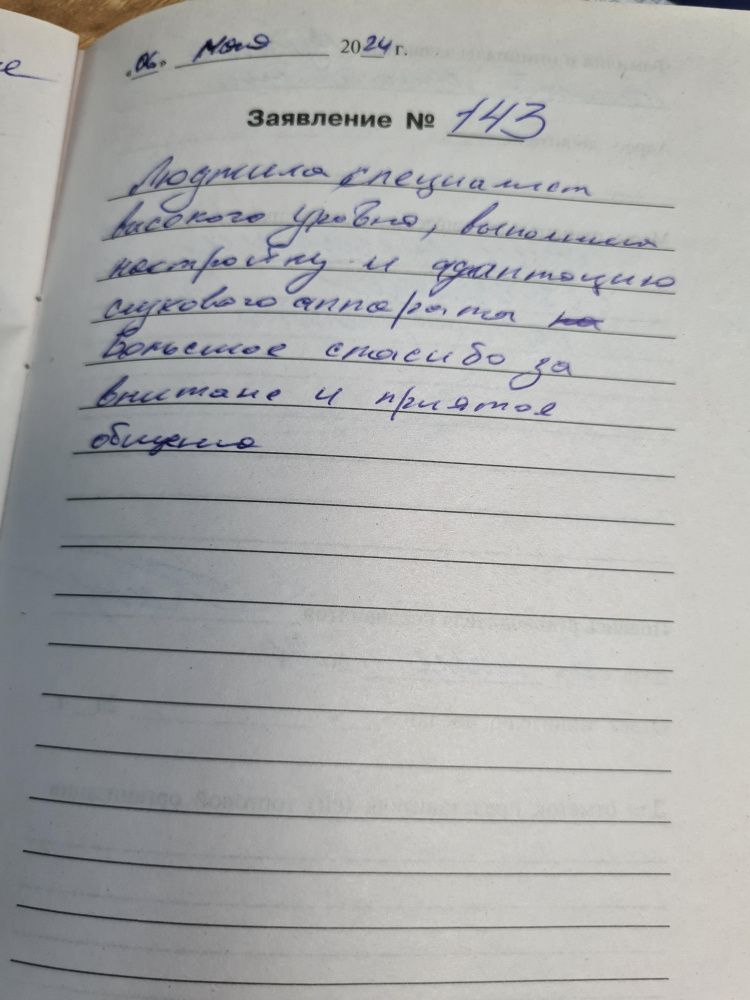 "06" мая 2024 г.
Заявление № 143
Людмила специалист
високого уровня, выполнила
настройку и адаптацию
слухового аппарата
Большое спасибо за
внимане и приятое
общения